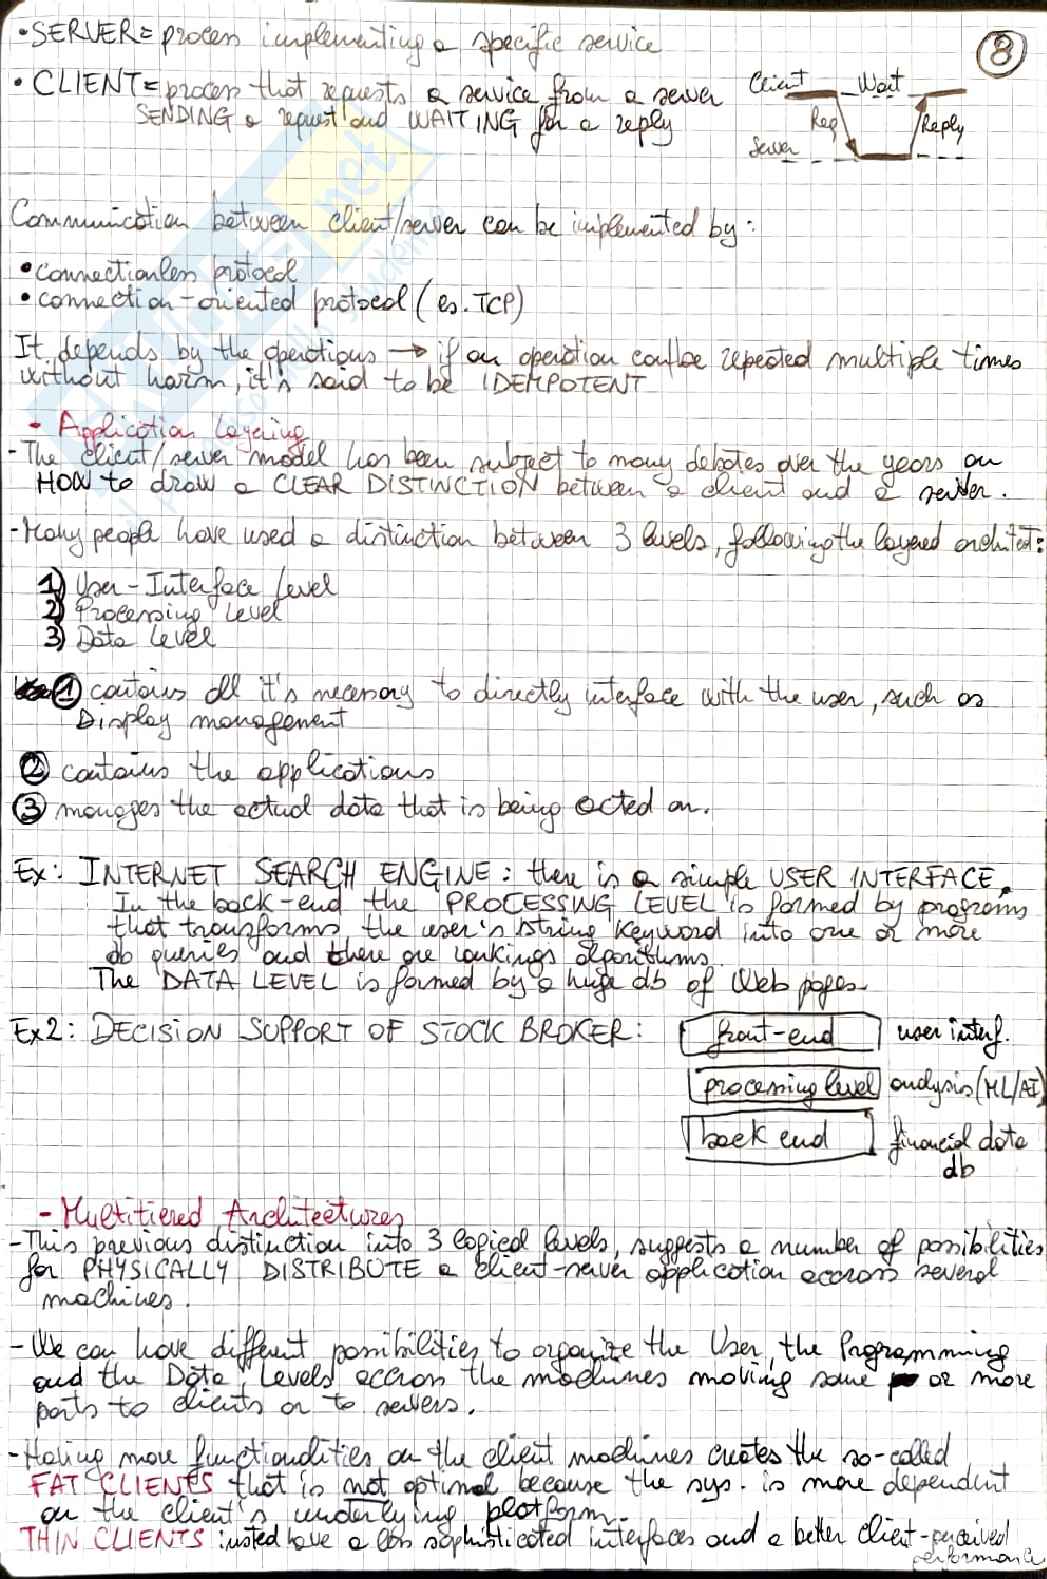 • SERVER = process implementing a specific service
8
• CLIENT = process that requests a service from a server
SENDING a request and WAITING for a reply
Client Wait
Req Reply
Server
Communication between client/server can be implemented by:
• connectionless protocol
• connection-oriented protocol (es. TCP)
It depends by the operations → if an operation can be repeated multiple times
without harm, it's said to be IDEMPOTENT
- Application Layering
- The client/server model has been subject to many debates over the years on
HOW to draw a CLEAR DISTINCTION between a client and a server.
- Many people have used a distinction between 3 levels, following the layered architect:
1) User-Interface level
2) Processing level
3) Data level
1 contains all it's necessary to directly interface with the user, such as
Display management
2 contains the applications
3 manages the actual data that is being acted on.
Ex: INTERNET SEARCH ENGINE: there is a simple USER INTERFACE.
In the back-end the PROCESSING LEVEL is formed by programs
that transforms the user's string keyword into one or more
db queries and there are rankings algorithms.
The DATA LEVEL is formed by a huge db of Web pages.
Ex2: DECISION SUPPORT OF STOCK BROKER:
front-end user interf.
processing level analysis (ML/AI)
back end financial data
db
- Multitiered Architectures
- This previous distinction into 3 logical levels, suggests a number of possibilities
for PHYSICALLY DISTRIBUTE a client-server application accross several
machines.
- We can have different possibilities to organize the User, the Programming
and the Data Levels accross the machines moving some or more
parts to clients or to servers.
- Having more functionalities on the client machines creates the so-called
FAT CLIENTS that is not optimal because the sys. is more dependent
on the client's underlying platform.
THIN CLIENTS: insted have a less sophisticated interfaces and a better client-perceived
performance